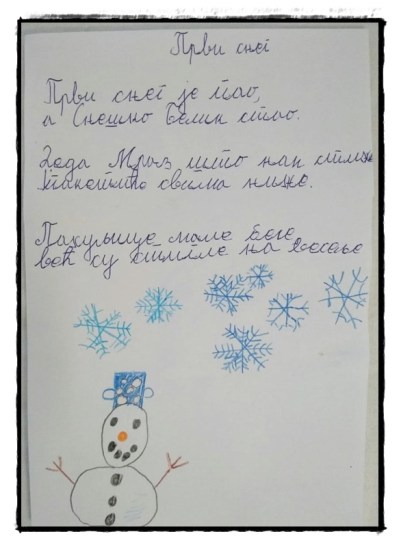 Први снег
Први снег је пао,
а Снешко Белић стао.
Деда Мраз што нам стиже
свима
Пахуљице мале беле
већ су стигле на весеље